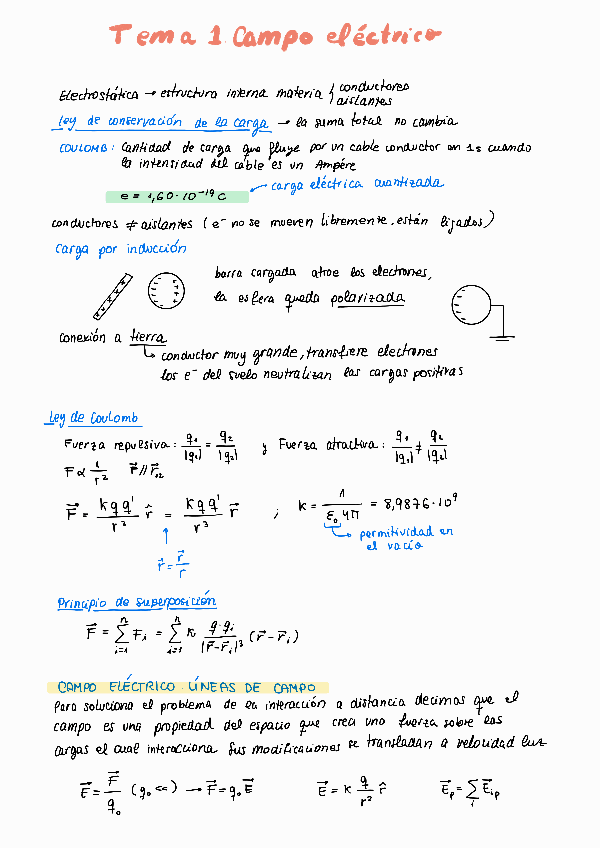 Tema 1 Campo eléctrico
Electrostática → estructura interna materia { conductores
aislantes
Ley de conservación de la carga → la suma total no cambia
COULOMB: Cantidad de carga que fluye por un cable conductor en 1s cuando
la intensidad del cable es un Ampére
e = 1,60·10⁻¹⁹ C
carga eléctrica cuantizada
conductores ≠ aislantes (e⁻ no se mueven libremente, están ligados)
Carga por inducción
barra cargada atrae los electrones,
la esfera queda polarizada
conexión a tierra
↳ conductor muy grande, transfiere electrones
los e⁻ del suelo neutralizan las cargas positivas
Ley de Coulomb
Fuerza repulsiva: q₁/|q₁| = q₂/|q₂| y Fuerza atractiva: q₁/|q₁| ≠ q₂/|q₂|
F ∝ 1/r² F⃗ // r⃗₁₂
F⃗ = k q q'/r² r̂ = k q q'/r³ r⃗ ; k = 1/(ε₀ 4π) = 8,9876·10⁹
↳ permitividad en
el vacío
r̂ = r⃗/r
Principio de superposición
F⃗ = Σⁿᵢ₌₁ Fᵢ = Σⁿᵢ₌₁ k q·qᵢ/|r⃗-r⃗ᵢ|³ (r⃗-r⃗ᵢ)
CAMPO ELÉCTRICO. LÍNEAS DE CAMPO
Para soluciona el problema de la interacción a distancia decimos que el
campo es una propiedad del espacio que crea una fuerza sobre las
cargas el cual interacciona Sus modificaciones se transladan a velocidad luz
E⃗ = F⃗/q₀ (q₀ <<) → F⃗ = q₀ E⃗ E⃗ = k q/r² r̂ E⃗ₚ = Σᵢ E⃗ᵢₚ